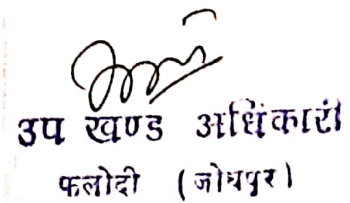 उप खण्ड अधिकारी
फलोदी (जोधपुर)